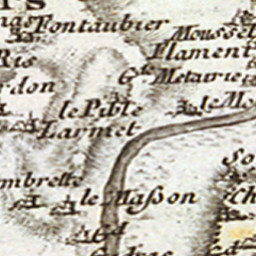 Fontaubier
Moussel
Flament
Ris
G.de Metairie
rdon
le Pible
le Mo
Larmet
So
mbrette
le Maßon
Ch